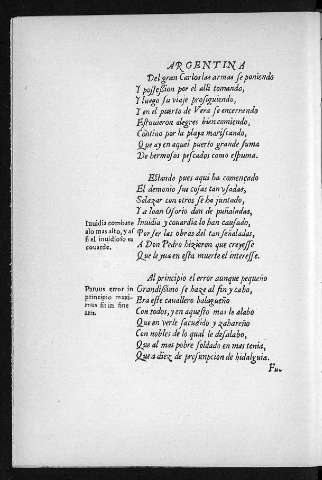 ARGENTINA
Del gran Carlos las armas se poniendo
Y possession por el alli tomando,
Y luego su viaje prosiguiendo,
Y en el puerto de Vera se encerrando
Estuuieron alegres bien comiendo,
Contino por la playa mariscando,
Que ay en aquel puerto grande suma
De hermosos pescados como espuma.
Estando pues aqui ha començado
El demonio sus cosas tan vsadas,
Salazar con otros se ha juntado,
Y a Ioan Osorio dan de puñaladas,
Inuidia y couardia lo han causado,
Por ser las obras del tan señaladas,
A Don Pedro hizieron que creyesse
Que le yua en esta muerte el interesse.
Inuidia combate
alo mas alto, y as
si el inuidioso es
couarde.
Al principio el error aunque pequeño
Grandissimo se haze al fin y cabo,
Era este cauallero halagueño
Con todos, y en aquesto mas le alabo
Que en verle sacudido y zahareño
Con nobles de lo qual le desalabo,
Que al mas pobre soldado en mas tenia,
Que a diez de presumpcion de hidalguia.
Paruus error in
principio maxi
mus fit in fine
Fu-